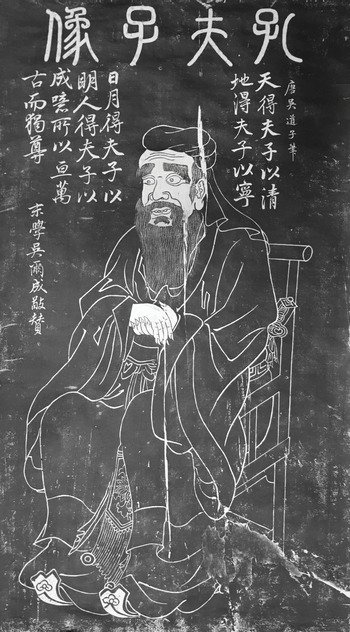 孔夫子像
唐吳道子筆
天得夫子以清
地得夫子以寧
日月得夫子以
明人得夫子以
成噫所以亘萬
古而獨尊
末學吳爾成敬贊